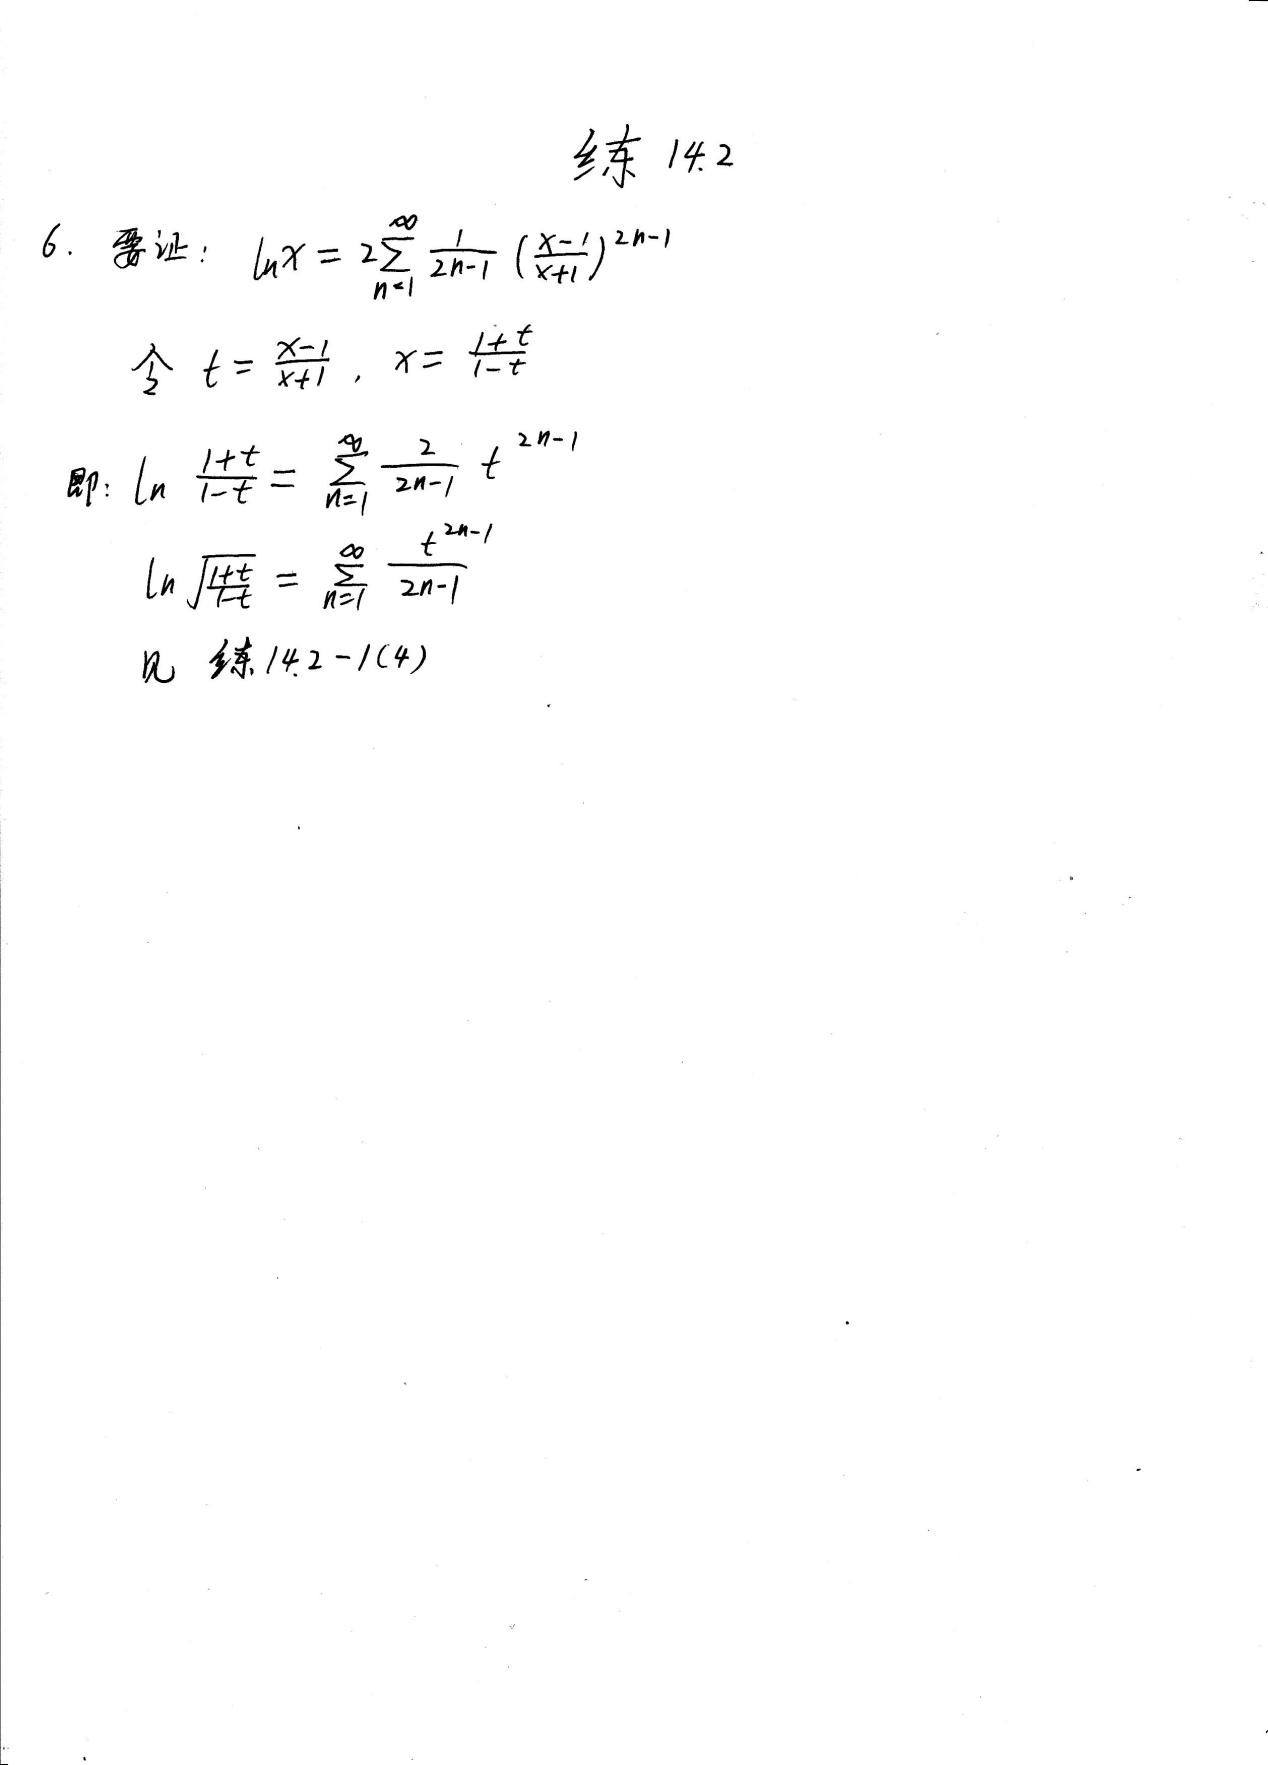 练 14.2
6. 要证: ln x = 2 \sum_{n=1}^{\infty} \frac{1}{2n-1} (\frac{x-1}{x+1})^{2n-1}
令 t = \frac{x-1}{x+1}, x = \frac{1+t}{1-t}
即: ln \frac{1+t}{1-t} = \sum_{n=1}^{\infty} \frac{2}{2n-1} t^{2n-1}
ln \sqrt{\frac{1+t}{1-t}} = \sum_{n=1}^{\infty} \frac{t^{2n-1}}{2n-1}
见 练14.2-1(4)